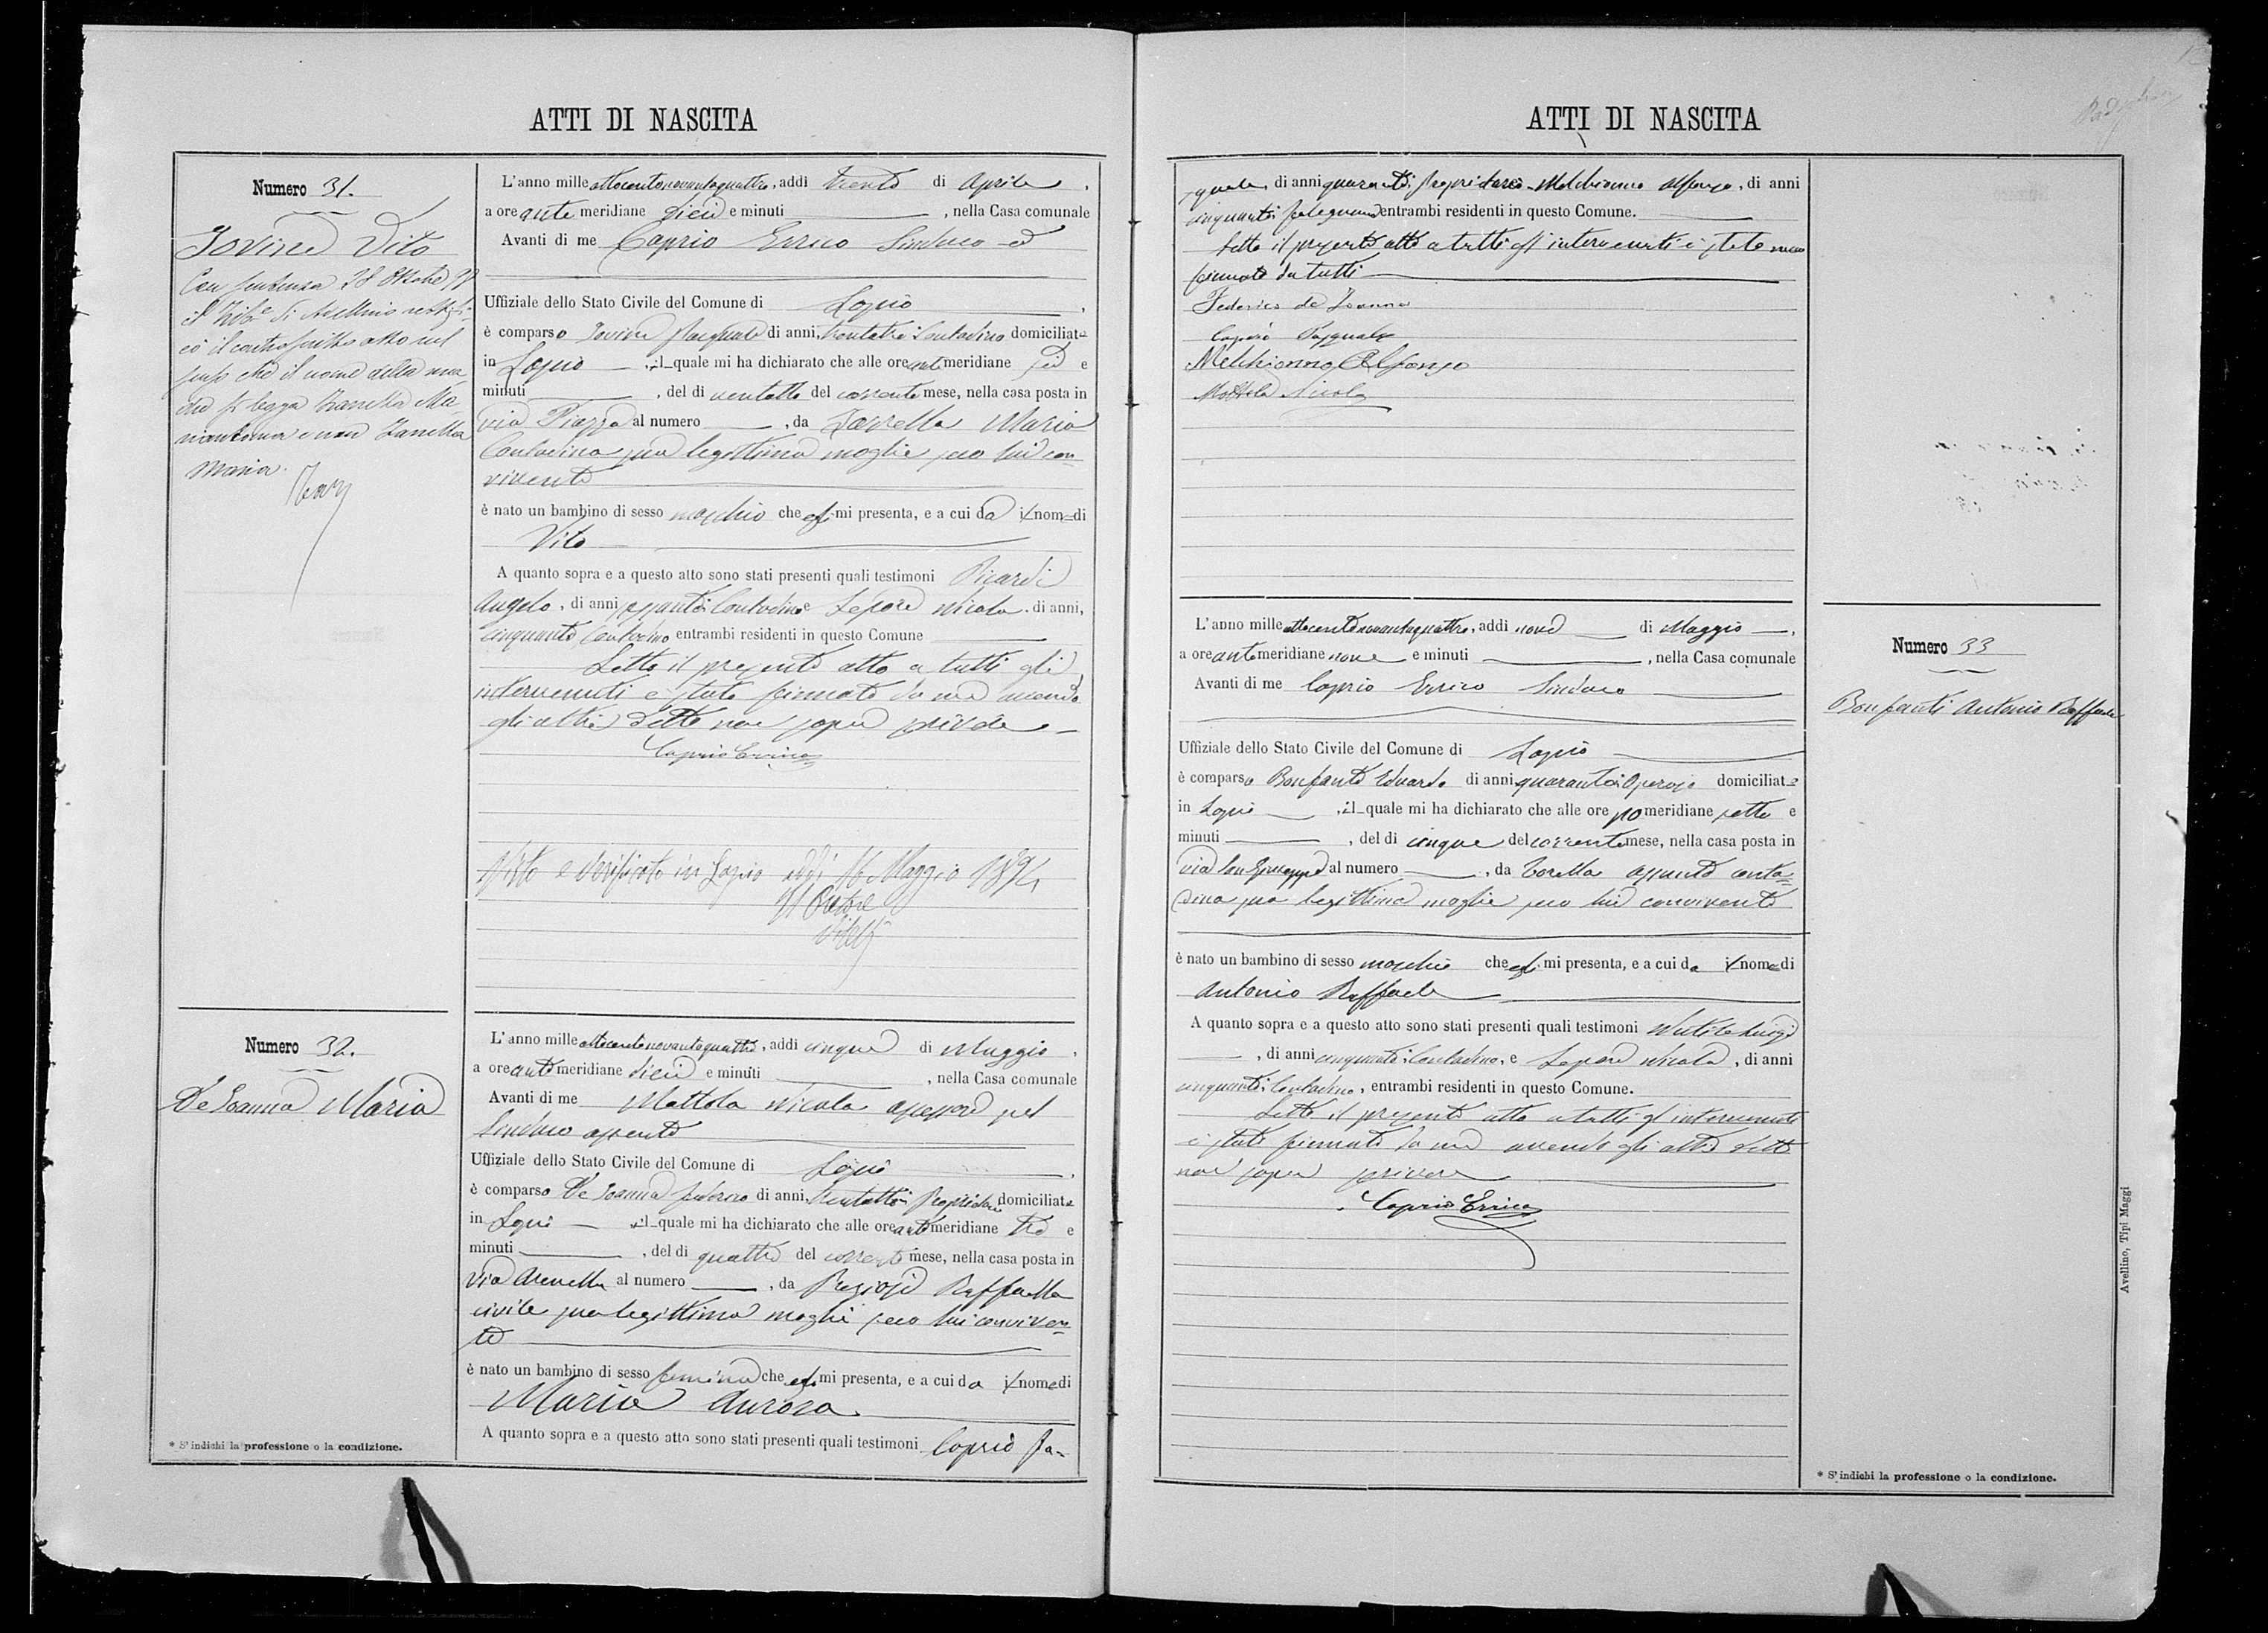 ATTI DI NASCITA
Numero 31.
Iovine Vito
Con sentenza 28 Ottobre
il Trib.e di Avellino rettifi-
cò il controscritto atto nel
senso che il nome della ma
dre si legga Zarrella Ma
riantonia e non Zarrella
Maria.
L'anno mille ottocentonovantaquattro, addì trenta di Aprile,
a ore ante meridiane dieci e minuti, nella Casa comunale
Avanti di me Caprio Errico Sindaco ed
Uffiziale dello Stato Civile del Comune di Lapio,
è comparso Iovine Pasquale di anni, trentatre Contadino domiciliato
in Lapio, il quale mi ha dichiarato che alle ore ante meridiane sei e
minuti, del dì ventotto del corrente mese, nella casa posta in
via Piazza al numero, da Zarrella Maria
Contadina sua legittima moglie seco lui con
vivente
è nato un bambino di sesso maschio che egli mi presenta, e a cui da il nome di
Vito
A quanto sopra e a questo atto sono stati presenti quali testimoni Ricardi
Angelo, di anni sessanta Contadino e Lepore Nicola, di anni,
cinquanta, Contadino entrambi residenti in questo Comune
Letto il presente atto a tutti gli
intervenuti è stato firmato da me avendo
gli altri detto non saper scrivere
Caprio Errico
Visto e verificato in Lapio addì 16 Maggio 1894
Il Pretore
Numero 32.
De Ioanna Maria
L'anno mille ottocentonovantaquattro, addì cinque di Maggio,
a ore ante meridiane dieci e minuti, nella Casa comunale
Avanti di me Mottola Nicola assessore pel
Sindaco assente
Uffiziale dello Stato Civile del Comune di Lapio,
è comparso De Ioanna Federico di anni, trentotto Proprietario domiciliato
in Lapio, il quale mi ha dichiarato che alle ore ante meridiane tre e
minuti, del dì quattro del corrente mese, nella casa posta in
via Arenella al numero, da Preziosi Raffaella
civile sua legittima moglie seco lui conviven-
te
è nato un bambino di sesso femmina che egli mi presenta, e a cui da il nome di
Maria Aurora
A quanto sopra e a questo atto sono stati presenti quali testimoni Caprio Pa-
* S'indichi la professione o la condizione.
ATTI DI NASCITA
squale, di anni quaranta, Proprietario e Melchionno Alfonso, di anni
cinquanta, falegname entrambi residenti in questo Comune.
Letto il presente atto a tutti gl'intervenuti è stato meco
firmato da tutti
Federico de Ioanna
Caprio Pasquale
Melchionno Alfonso
Mottola Nicola
Numero 33
Bonfanti Antonio Raffaele
L'anno mille ottocentonovantaquattro, addì nove di Maggio,
a ore ante meridiane nove e minuti, nella Casa comunale
Avanti di me Caprio Errico Sindaco
Uffiziale dello Stato Civile del Comune di Lapio
è comparso Bonfante Eduardo di anni quaranta Operaio domiciliato
in Lapio, il quale mi ha dichiarato che alle ore pomeridiane sette e
minuti, del dì cinque del corrente mese, nella casa posta in
via San Giuseppe al numero, da Torella Assunta conta-
dina sua legittima moglie seco lui convivente
è nato un bambino di sesso maschio che egli mi presenta, e a cui da il nome di
Antonio Raffaele
A quanto sopra e a questo atto sono stati presenti quali testimoni Luigi
, di anni cinquanta, Contadino, e Lepore Nicola, di anni
cinquanta, Contadino, entrambi residenti in questo Comune.
Letto il presente atto a tutti gl'intervenuti
è stato firmato da me avendo gli altri detto
non saper scrivere
Caprio Errico
* S'indichi la professione o la condizione.
Avellino, Tipi Maggi